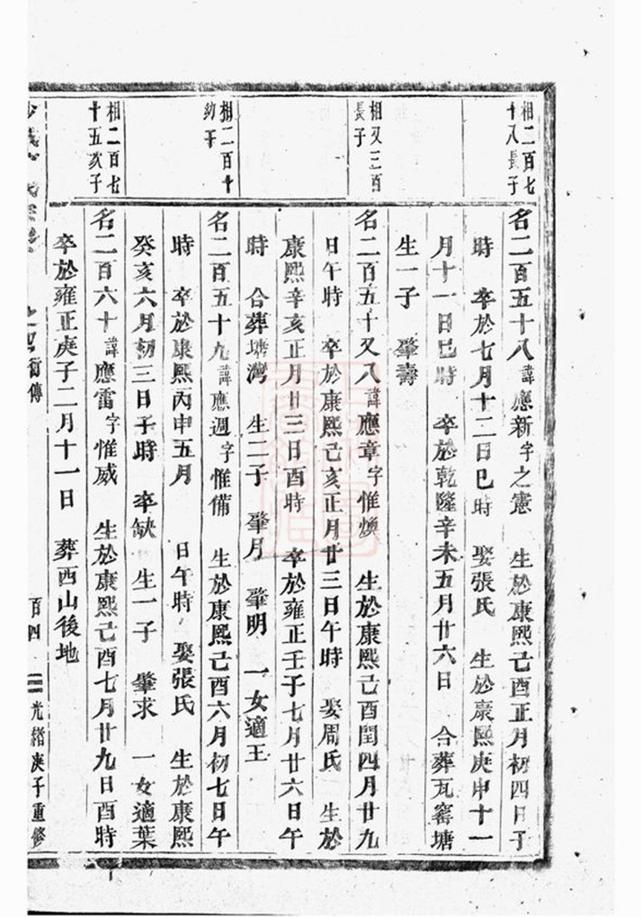 相二百七
十八長子
名二百五十八諱應新字之憲 生於康熙己酉正月初四日子
時 卒於七月十二日巳時 娶張氏 生於康熙庚申十一
月十一日巳時 卒於乾隆辛未五月廿六日 合葬瓦窰塘
生一子 肇壽
相又三百
長子
名二百五十又八諱應章字惟煥 生於康熙己酉閏四月廿九
日午時 卒於康熙己亥正月廿三日午時 娶周氏 生於
康熙辛亥正月廿三日酉時 卒於雍正壬子七月廿六日午
時 合葬塘灣 生二子 肇月 肇明 一女適王
相二百十
幼子
名二百五十九諱應週字惟備 生於康熙己酉六月初七日午
時 卒於康熙丙申五月 日午時 娶張氏 生於康熙
癸亥六月初三日子時 卒缺 生一子 肇求 一女適葉
相二百七
十五次子
名二百六十諱應雷字惟威 生於康熙己酉七月廿九日酉時
卒於雍正庚子二月十一日 葬西山後地
衍傳
百四
光緒庚子重修